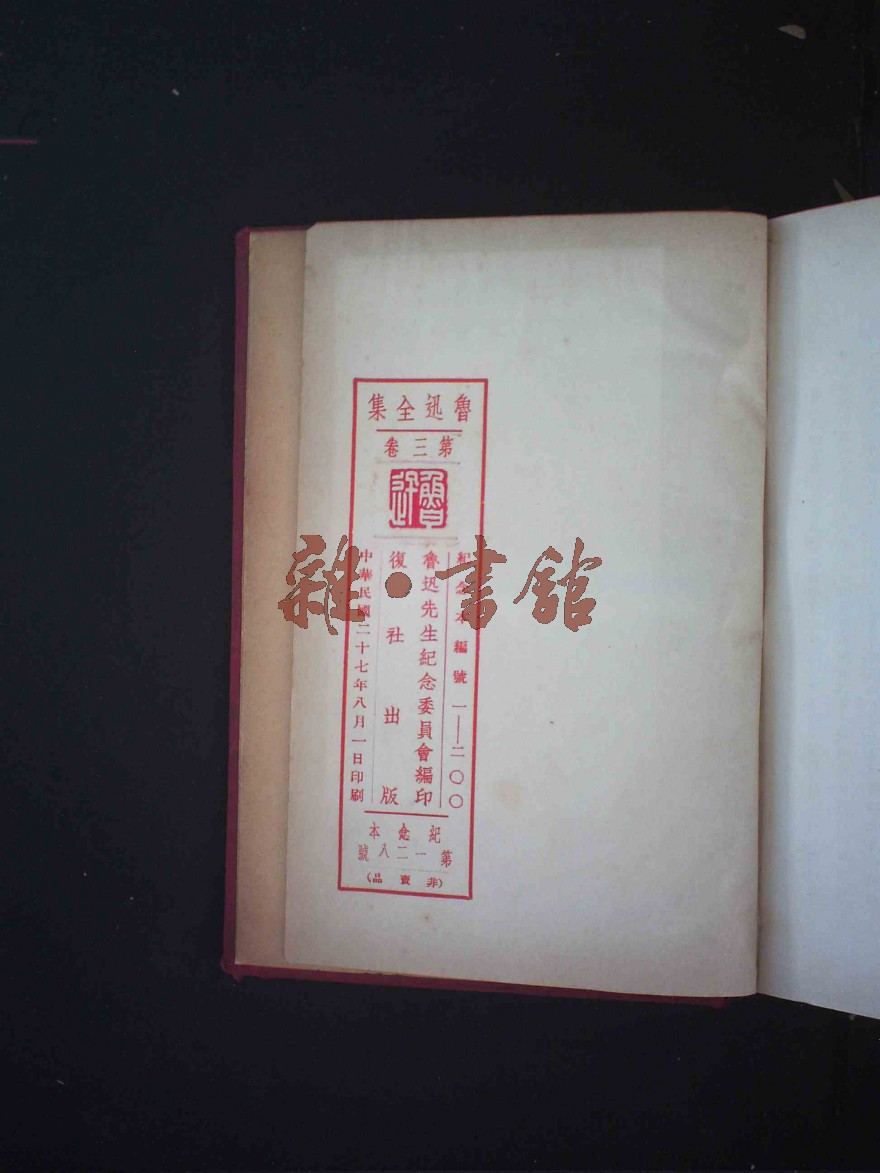 魯迅全集
第三卷
魯迅
紀念本編號 一——二〇〇
魯迅先生紀念委員會編印
復社出版
中華民國二十七年八月一日印刷
紀念本
第一二八號
(非賣品)
雜·書館